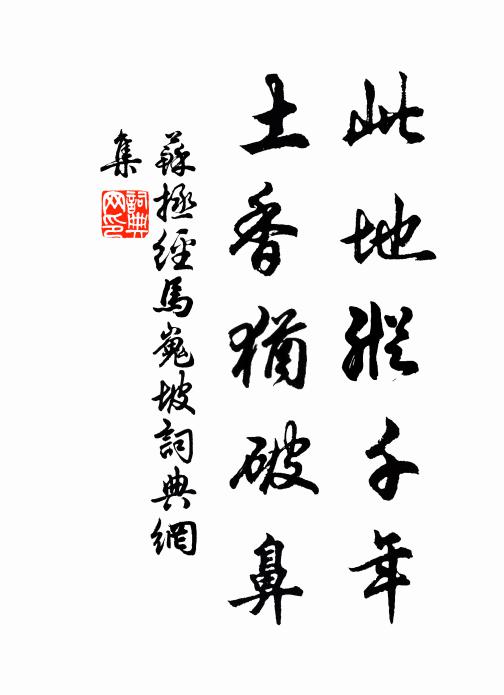 此地縱千年
土香猶破鼻
蘇拯經馬嵬坡詞典網
集
詞典
网印